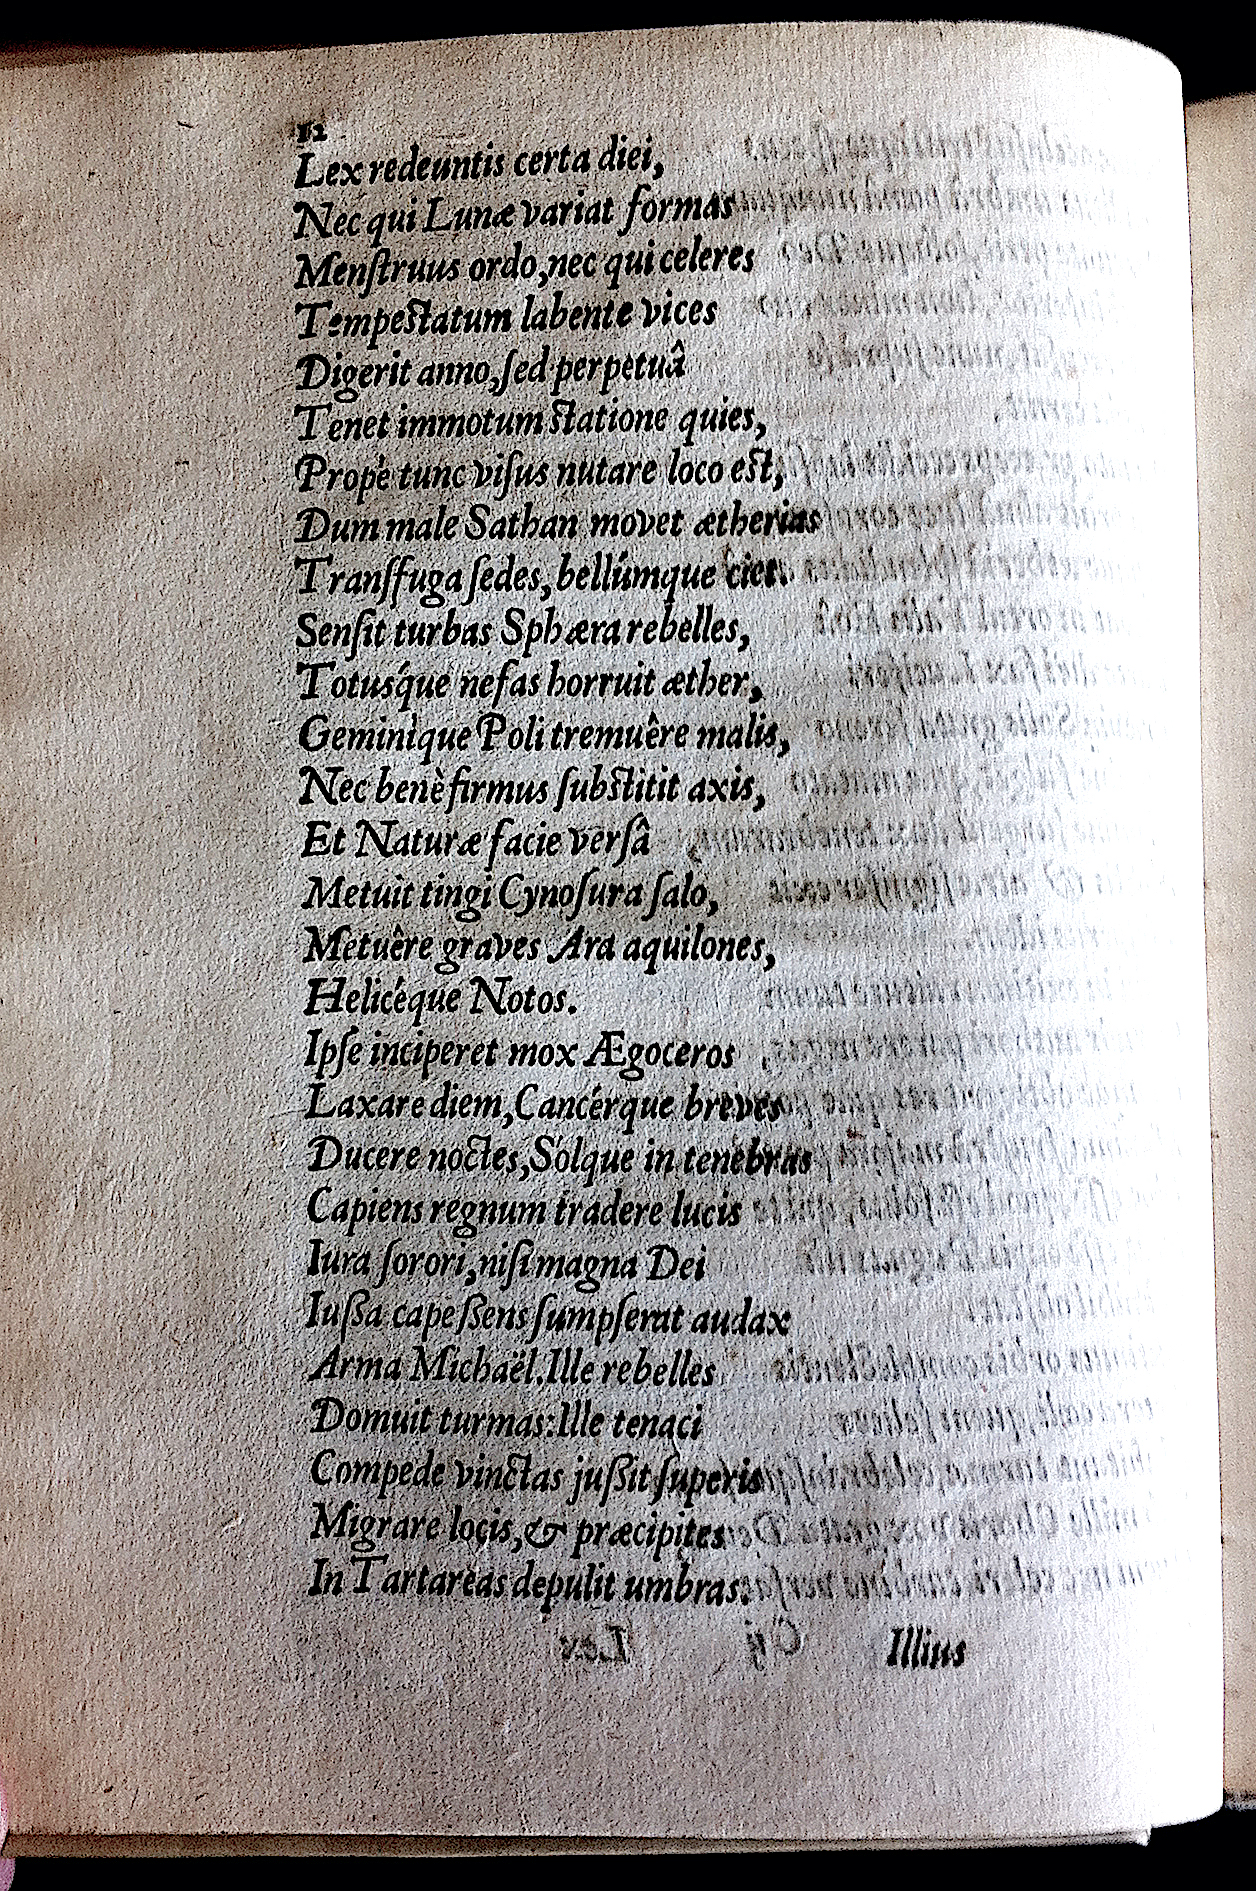 12
Lex redeuntis certa diei,
Nec qui Lunæ variat formas
Menſtruus ordo, nec qui celeres
Tempeſtatum labente vices
Digerit anno, ſed perpetuâ
Tenet immotum ſtatione quies,
Propè tunc viſus nutare loco eſt,
Dum male Sathan movet ætherias
Tranſfuga ſedes, bellúmque ciet.
Senſit turbas Sphæra rebelles,
Totusq́ue nefas horruit æther,
Geminíque Poli tremuêre malis,
Nec benè firmus ſubſtitit axis,
Et Naturæ facie verſâ
Metuit tingi Cynoſura ſalo,
Metuêre graves Ara aquilones,
Helicéque Notos.
Ipſe inciperet mox Ægoceros
Laxare diem, Cancérque breves
Ducere noctes, Sólque in tenebras
Capiens regnum tradere lucis
Iura ſorori, niſi magna Dei
Iuſſa capeſſens ſumpſerat audax
Arma Michaël. Ille rebelles
Domuit turmas: Ille tenaci
Compede vinctas juſſit ſuperis
Migrare locis, & præcipites
In Tartareas depulit umbras.
Illius